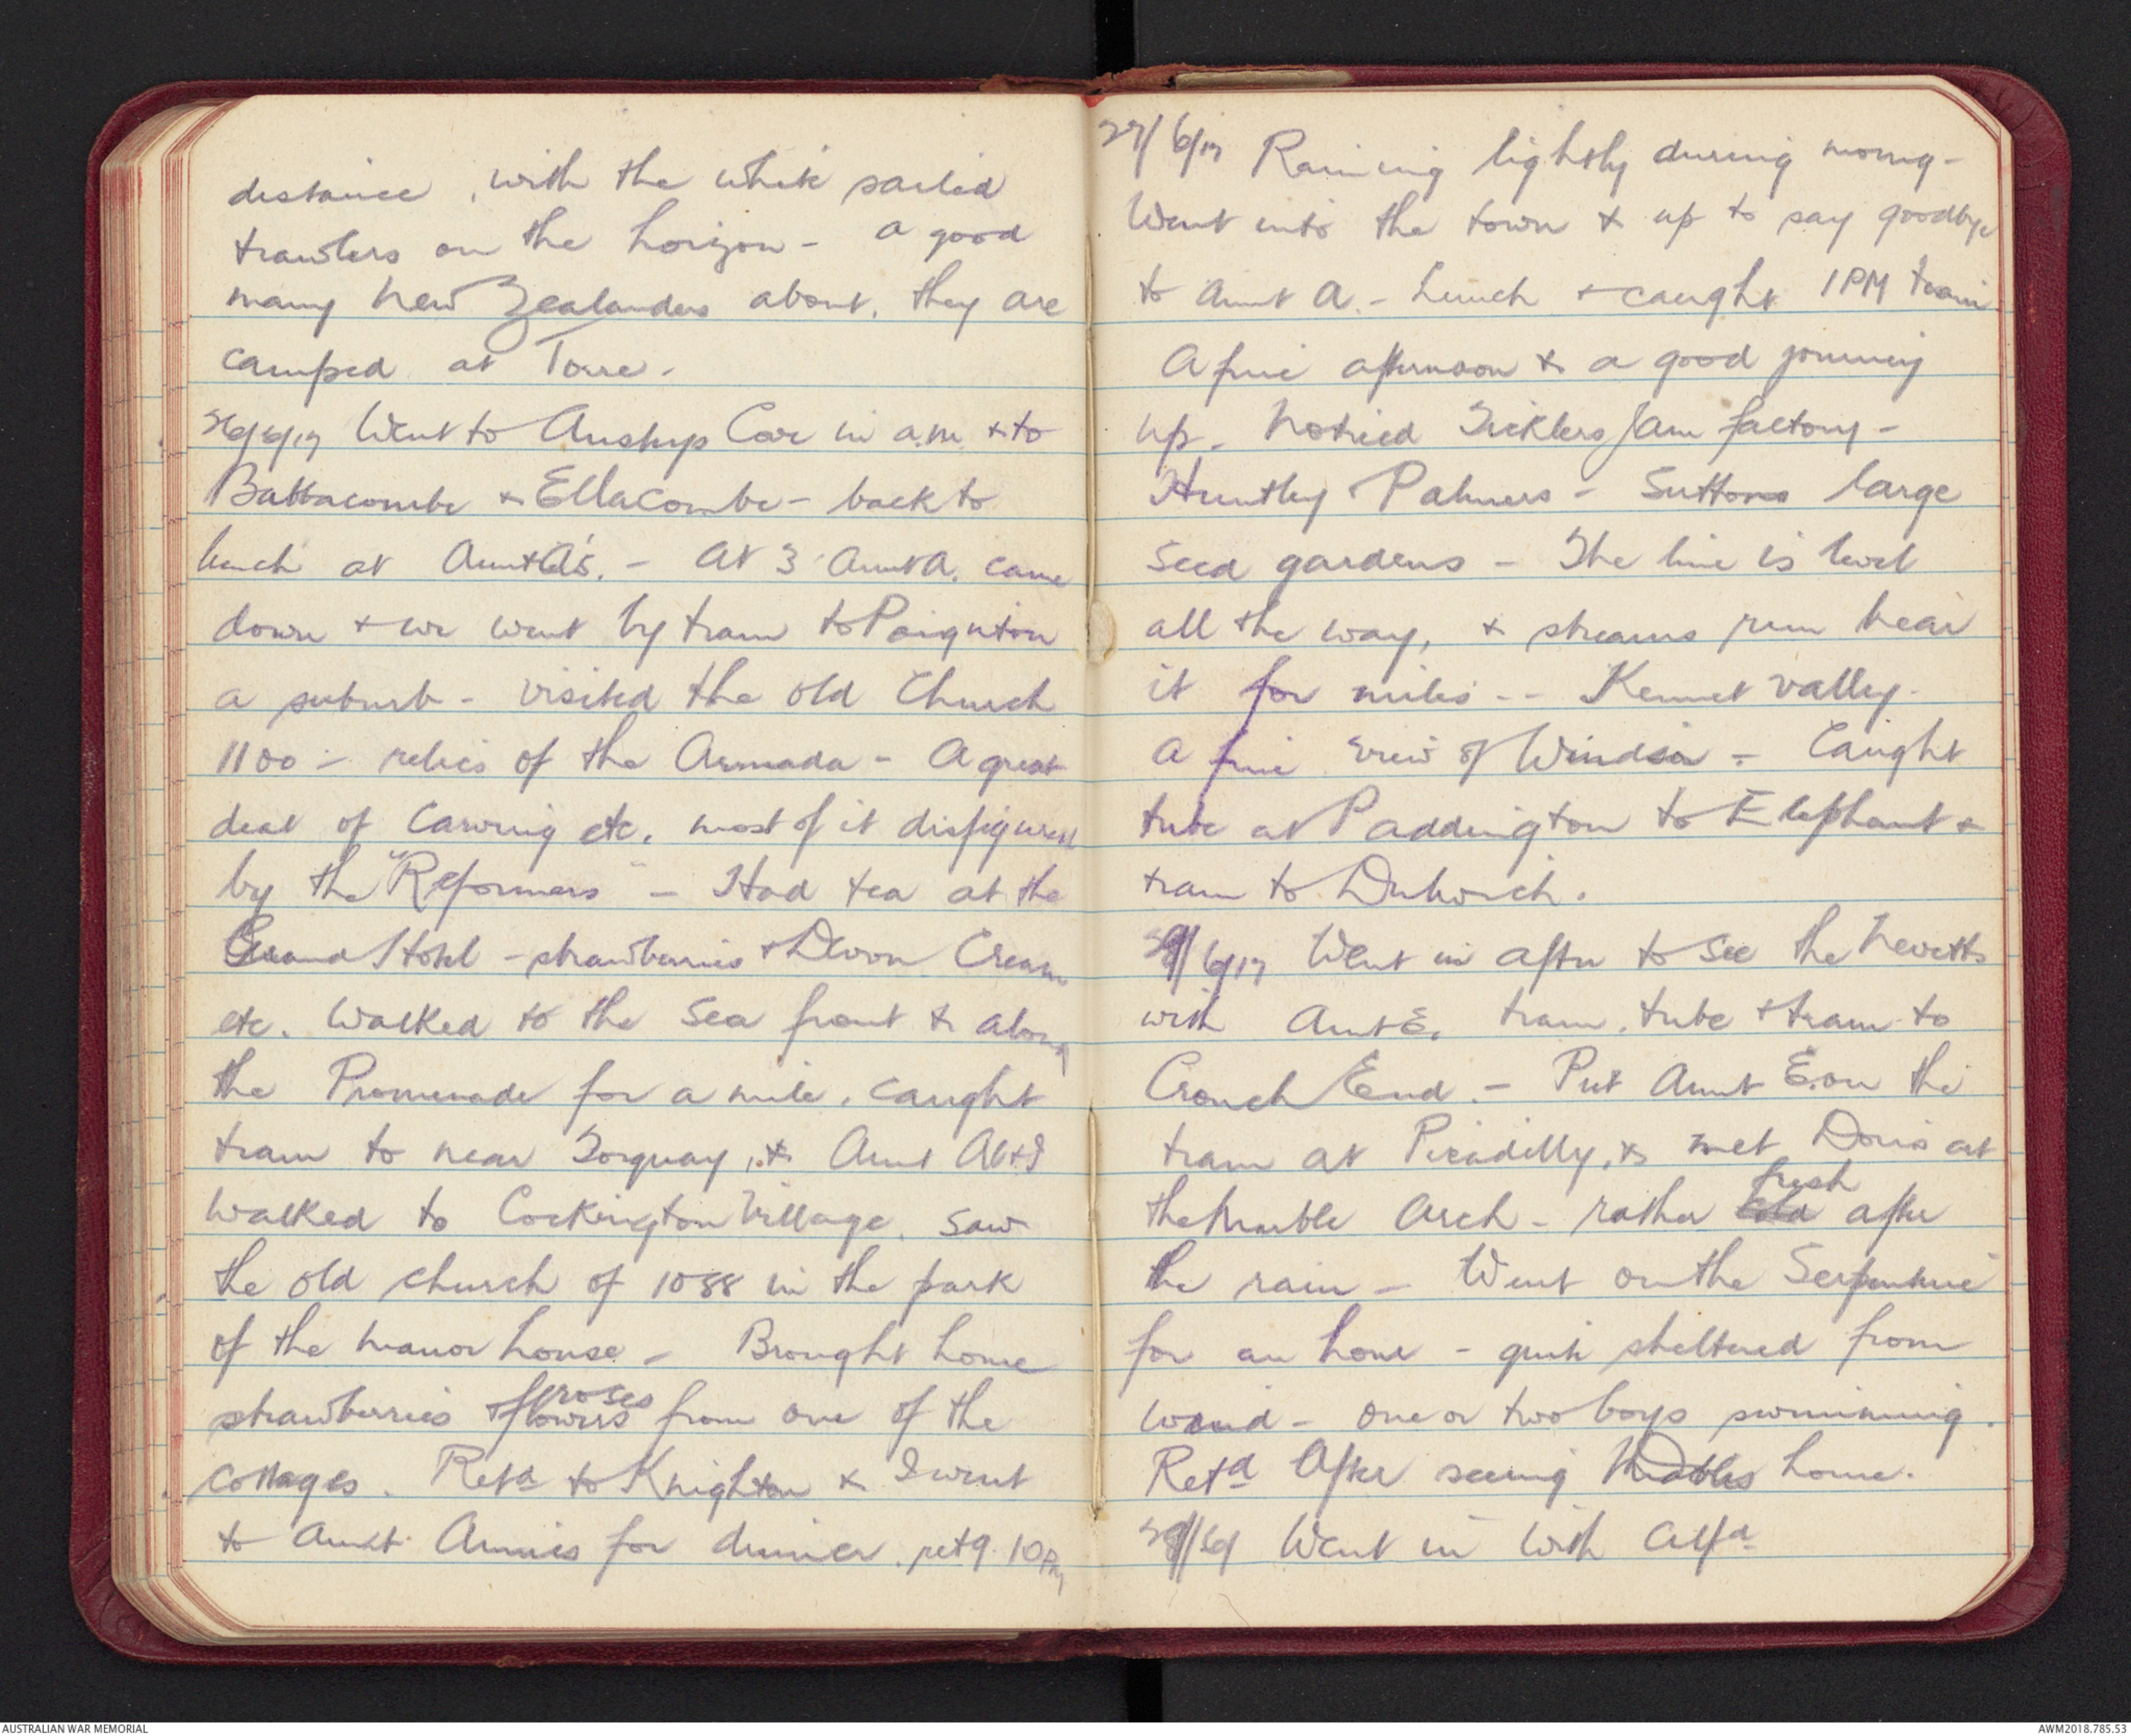 distance, with the white sailed
trawlers on the horizon - a good
many New Zealanders about, they are
camped at Torre.
26/6/17 Went to Ansteys Cove in a.m. & to
Babbacombe & Ellacombe - back to
lunch at Aunt A's. - At 3 Aunt A. came
down & we went by tram to Paignton
a suburb - visited the old Church
1100 - relics of the Armada - A great
deal of carving etc. most of it disfigured
by the "Reformers" - Had tea at the
Grand Hotel - strawberries & Devon Cream
etc. Walked to the sea front & along
the Promenade for a mile, caught
tram to near Torquay, & Aunt A & I
walked to Cockington Village. saw
the old church of 1088 in the park
of the manor house - Brought home
strawberries & flowers roses from one of the
cottages. Retd to Knighton & I went
to Aunt Annies for dinner. retg. 10PM
27/6/17 Raining lightly during morng -
Went into the town & up to say goodbye
to Aunt A. - Lunch & caught 1PM train
A fine afternoon & a good journey
up. Noticed Ticklers Jam factory -
Huntley Palmers - Suttons large
seed gardens - The line is level
all the way, & streams run near
it for miles -- Kennet valley.
A fine view of Windsor - Caught
tube at Paddington to Elephant &
tram to Dulwich.
28/6/17 Went in aftn to see the Nevetts
with Aunt E. tram, tube & tram to
Crouch End. - Put Aunt E. on the
tram at Picadilly, & met Doris at
the Marble Arch - rather cold fresh after
the rain - Went on the Serpentine
for an hour - quite sheltered from
wind - one or two boys swimming.
Retd After seeing home.
29/6/ Went in with Alfd